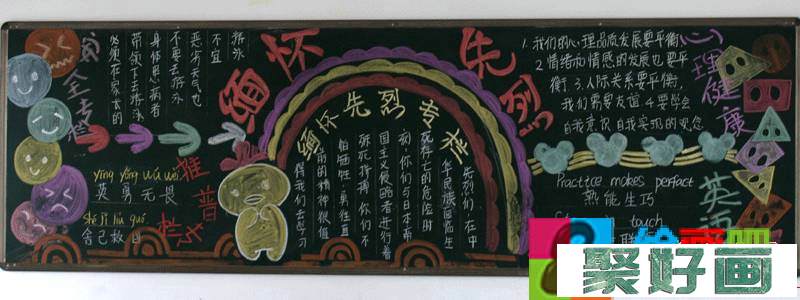 安全专栏
游泳
不宜
恶劣天气也
不要去游泳
身体患病者
带领下去游泳
必须在家长的
yīng yǒng wú wèi
英勇无畏
shě jǐ jiù guó
舍己救国
推普栏
缅怀先烈
缅怀先烈专栏
先烈们，在中
华民族面临生
死存亡的危险时
刻，你们与日本帝
国主义侵略者进行着
殊死搏斗，你们不
怕牺牲，勇往直
前的精神很值
得我们去学习
心理健康
1.我们的心理品质发展要平衡
2.情绪和情感的发展也要平
衡.3.人际关系要平衡,
我们需要友谊.4.要学会
自我意识自我实现的观念
英语
Practice makes perfect
熟能生巧
in touch
聚好画